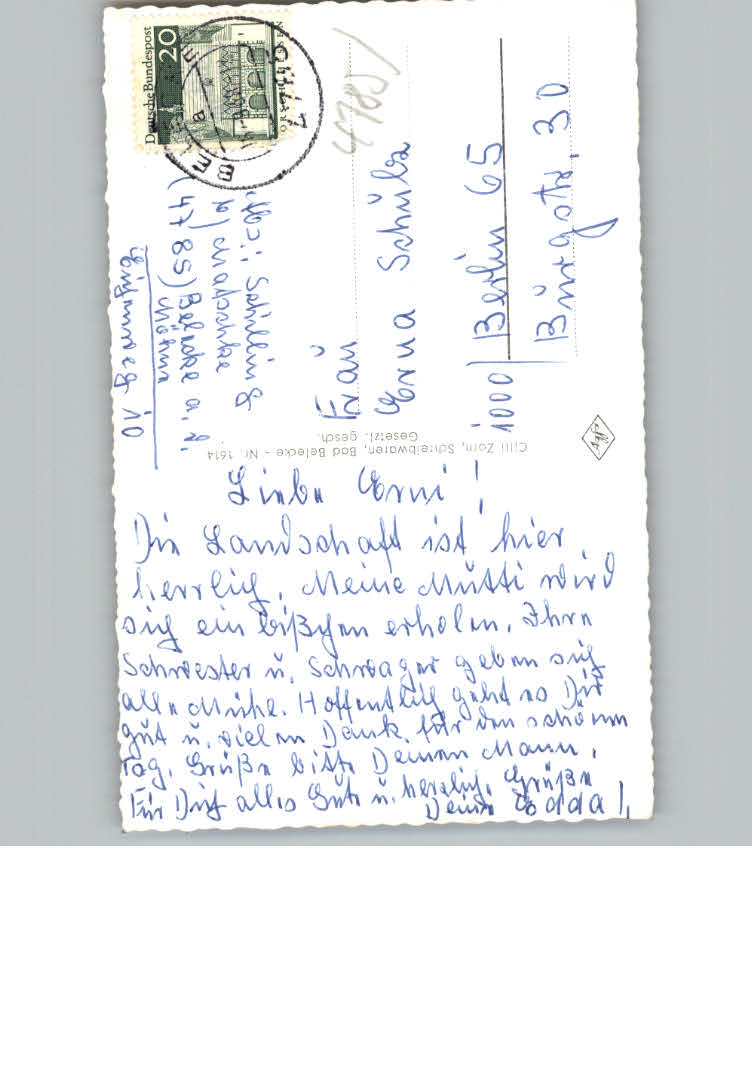 Liebe Erni!
Die Landschaft ist hier
herrlich. Meine Mutti wird
sich ein bißchen erholen. Ihre
Schwester u. Schwager geben sich
alle Mühe. Hoffentlich geht es Dir
gut u. vielen Dank für den schönen
Tag. Grüße bitte Deinen Mann.
Für Dich alles Gute u. herzlich. Grüße
Deine Edda!
Cilli Zorn, Schreibwaren, Bad Belecke - Nr. 1614
Gesetzl. gesch.
Abs.: Schilling
b/ Matschke
(4785) Belecke a. d.
Möhne
10
Deutsche Bundespost
20
LORSCH HESSEN
BELECKE
4785
Frau
Erna Schulz
1000 Berlin 65
Bürgstr. 30